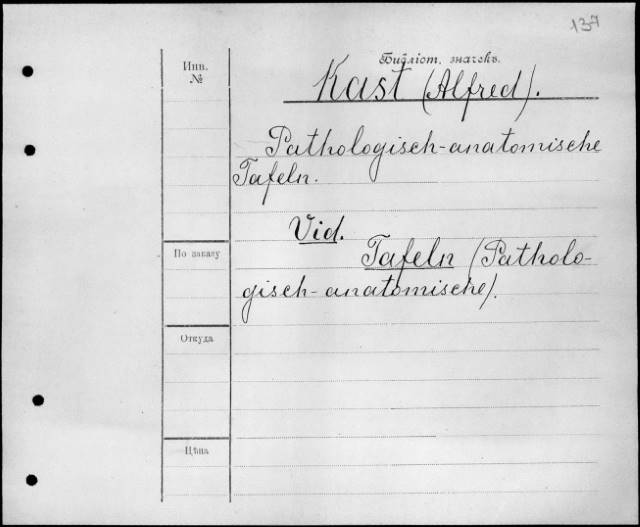 137
Инв.
№
Библіот. значекъ.
Kast (Alfred).
Pathologisch-anatomische
Tafeln.
Vid.
По заказу
Tafeln (Patholo-
gisch-anatomische).
Откуда
Цѣна